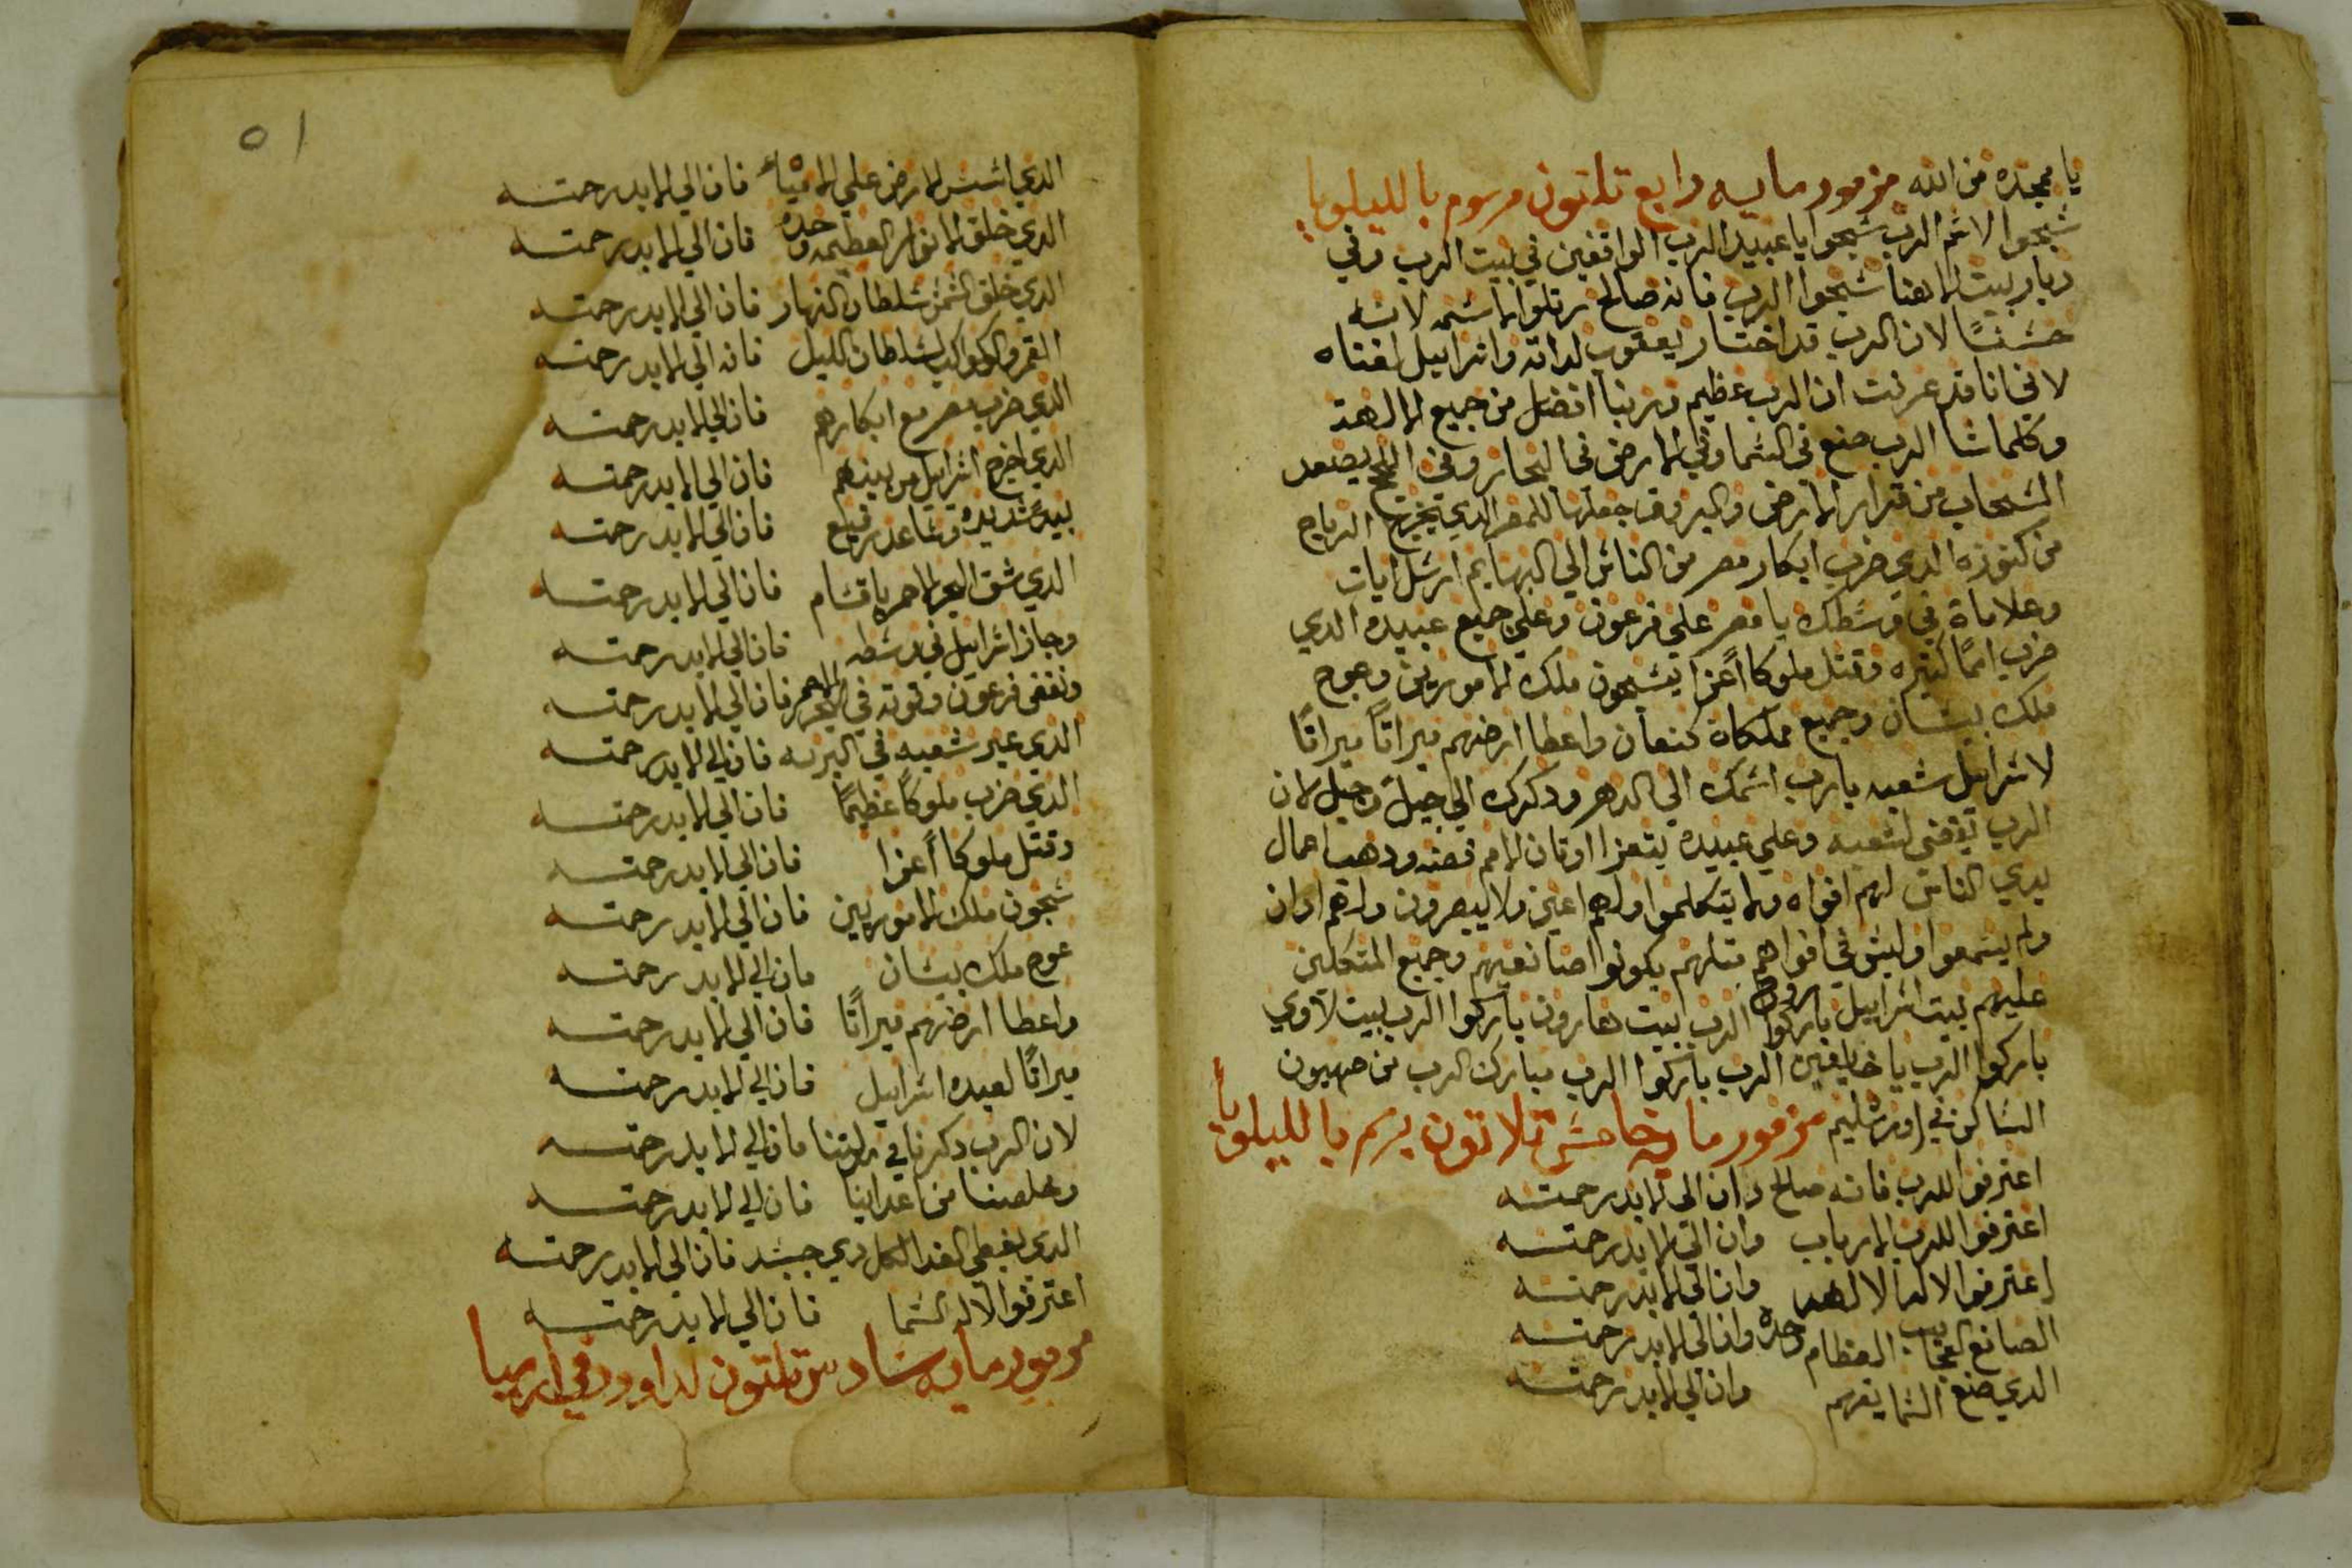 يا ممجده من الله مزمور مايه رابع تلتون مرسوم بالليلويا
سبحوا لاسم الرب سبحوا يا عبيد الرب الواقفين في بيت الرب وفي
ديار بيت الاهنا سبحوا الرب فانه صالح رتلوا لاسمه لانه
حسنًا لان الرب قد اختار يعقوب لداته واسراييل لغناه
لاني انا قد عرفت ان الرب عظيم وربنا افضل من جميع الالهة
وكلما شا الرب صنع في السما وفي الارض في البحار وفي اللجج يصعد
السحاب من قرار الارض والبروق جعلها للمطر الدي يخرج الرياح
من كنوزه الدي ضرب ابكار مصر من الناس الي البهايم ارسل ايات
وعلاماة في وسطك يا مصر علي فرعون وعلي جميع عبيده الدي
ضرب اممًا كتيره وقتل ملوكا اعزا سيحون ملك الاموريين وعوج
ملك بيسان وجميع مملكاة كنعان واعطا ارضهم ميراتًا ميراتًا
لاسراييل شعبه يا رب اسمك الي الدهر ودكرك الي جيل وجيل لان
الرب يقضي لشعبه وعلي عبيده يتعزا اوتان الامم فضه ودهب اعمال
يدي الناس لهم افواه ولا يتكلموا ولهم اعين ولا يبصرون ولهم ادان
ولم يسمعوا وليس في افواههم روح متلهم يكونوا صانعيهم وجميع المتكلين
عليهم بيت اسراييل باركوا الرب بيت هارون باركوا الرب بيت لاوي
باركوا الرب يا خايفين الرب باركوا الرب مبارك الرب من صهيون
الساكن في اورشليم مزمور مايه خامس تلاتون يرسم بالليلويا
اعترفوا للرب فانه صالح وان الي الابد رحمته
اعترفوا للرب الارباب وان الي الابد رحمته
اعترفوا الاله الالهه وان الي الابد رحمته
الصانع العجايب العظام وحده وان الي الابد رحمته
الدي صنع السما بفهم وان الي الابد رحمته
٥١
الدي اسس الارض علي المياء فان الي الابد رحمته
الدي خلق الانوار العظيمه وحده فان الي الابد رحمته
الدي خلق الشمس سلطان النهار فان الي الابد رحمته
القمر والكواكب لسلطان الليل فان الي الابد رحمته
الدي ضرب مصر مع ابكارهم فان الي الابد رحمته
الدي اخرج اسراييل من بينهم فان الي الابد رحمته
بيد شديده وساعد رفيع فان الي الابد رحمته
الدي شق البحر الاحمر باقسام فان الي الابد رحمته
وجاز اسراييل في وسطه فان الي الابد رحمته
ونفض فرعون وقوته في البحر الاحمر فان الي الابد رحمته
الدي عبر شعبه في البريه فان الي الابد رحمته
الدي ضرب ملوكًا عظيمًا فان الي الابد رحمته
وقتل ملوكا اعزا فان الي الابد رحمته
سيحون ملك الاموريين فان الي الابد رحمته
عوج ملك بيسان فان الي الابد رحمته
واعطا ارضهم ميراتًا فان الي الابد رحمته
ميراتًا لعبده اسراييل فان الي الابد رحمته
لان الرب دكرنا في مدلتنا فان الي الابد رحمته
وخلصنا من اعداينا فان الي الابد رحمته
الدي يعطي الغدا لكل دي جسد فان الي الابد رحمته
اعترفوا لاله السما فان الي الابد رحمته
مزمور مايه سادس تلتون لداوود في ارميا